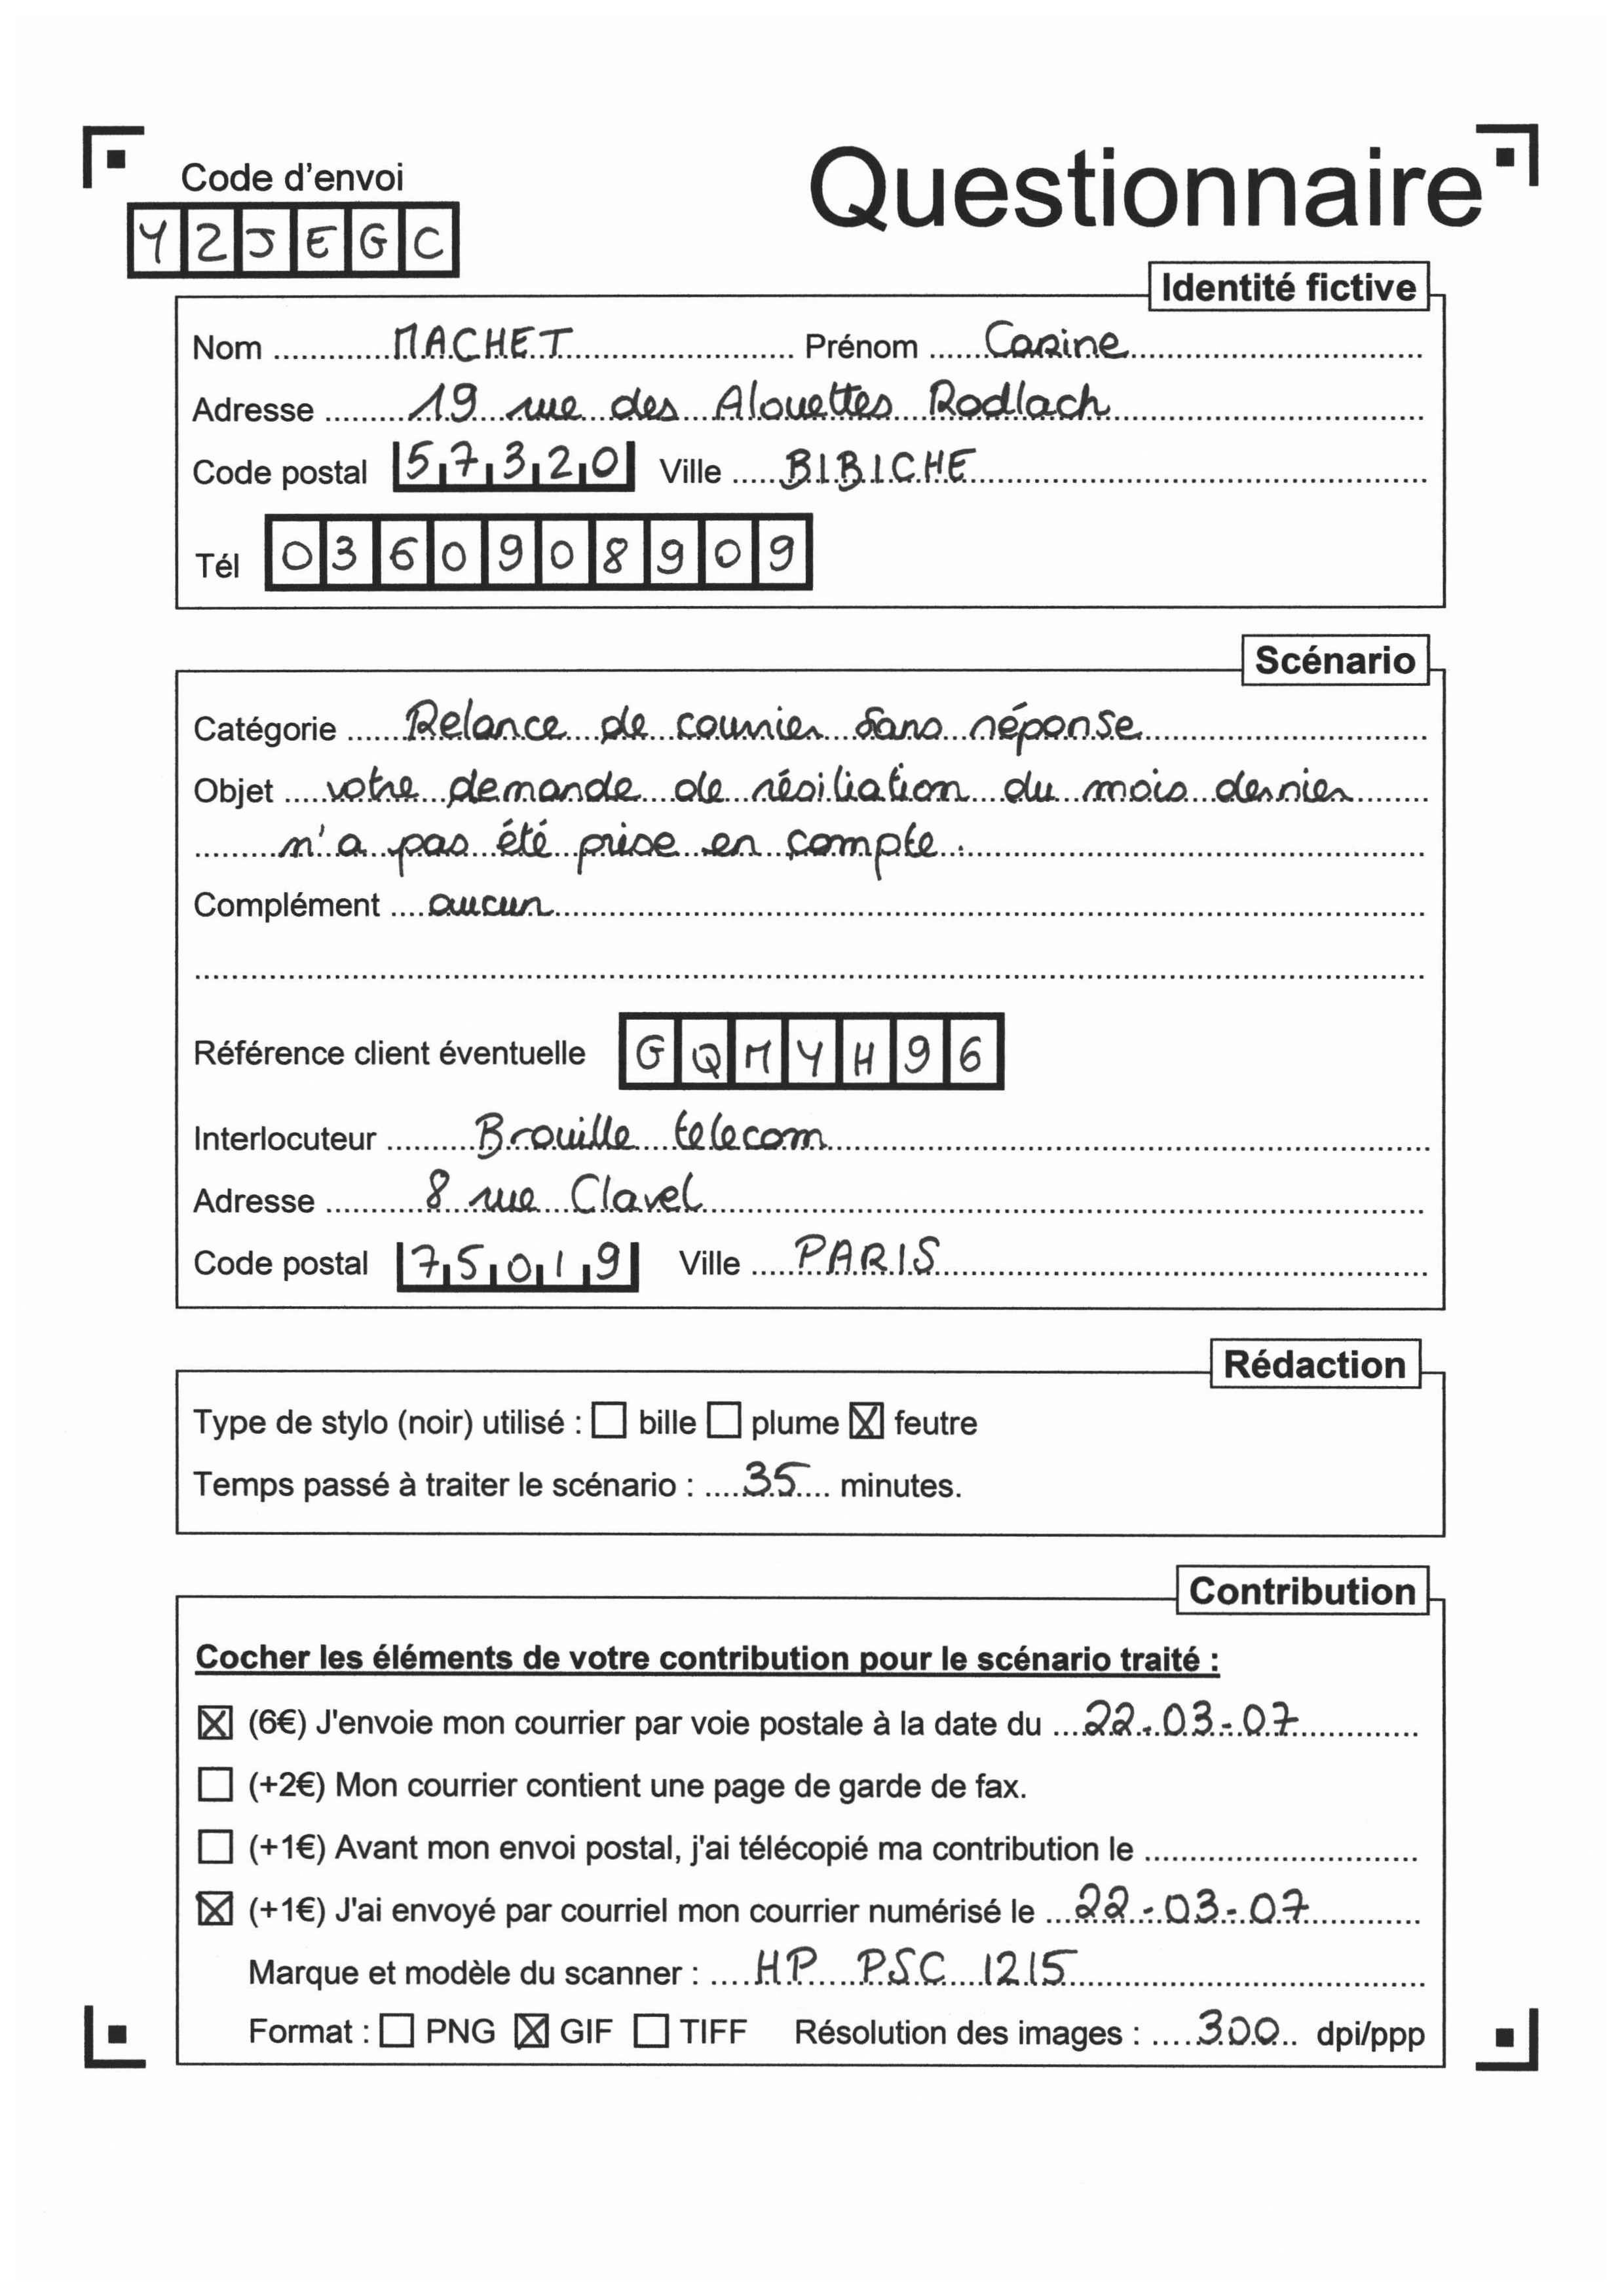 Code d'envoi
Questionnaire
Y2JEGC
Identité fictive
Nom ............MACHET..................... Prénom ......Carine..............................
Adresse .........19 rue des Alouettes Rodlach..............................
Code postal 57320 Ville .....BIBICHE..............................
Tél 0360908909
Scénario
Catégorie ......Relance de courrier sans réponse..............................
Objet ....votre demande de résiliation du mois dernier........
.........n'a pas été prise en compte...............................
Complément ....aucun..............................
Référence client éventuelle GQMYH96
Interlocuteur .........Brouille telecom..............................
Adresse ..........8 rue Clavel..............................
Code postal 75019 Ville .....PARIS..............................
Rédaction
Type de stylo (noir) utilisé : ☐ bille ☐ plume ☒ feutre
Temps passé à traiter le scénario : ....35.... minutes.
Contribution
Cocher les éléments de votre contribution pour le scénario traité :
☒ (6€) J'envoie mon courrier par voie postale à la date du ...22-03-07............
☐ (+2€) Mon courrier contient une page de garde de fax.
☐ (+1€) Avant mon envoi postal, j'ai télécopié ma contribution le ..............................
☒ (+1€) J'ai envoyé par courriel mon courrier numérisé le ...22-03-07............
Marque et modèle du scanner : ....HP PSC 1215..............................
Format : ☐ PNG ☒ GIF ☐ TIFF Résolution des images : ....300.. dpi/ppp